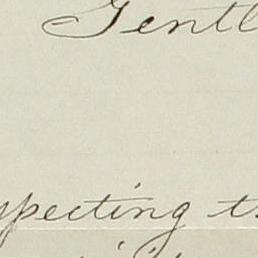 Gentl
specting th